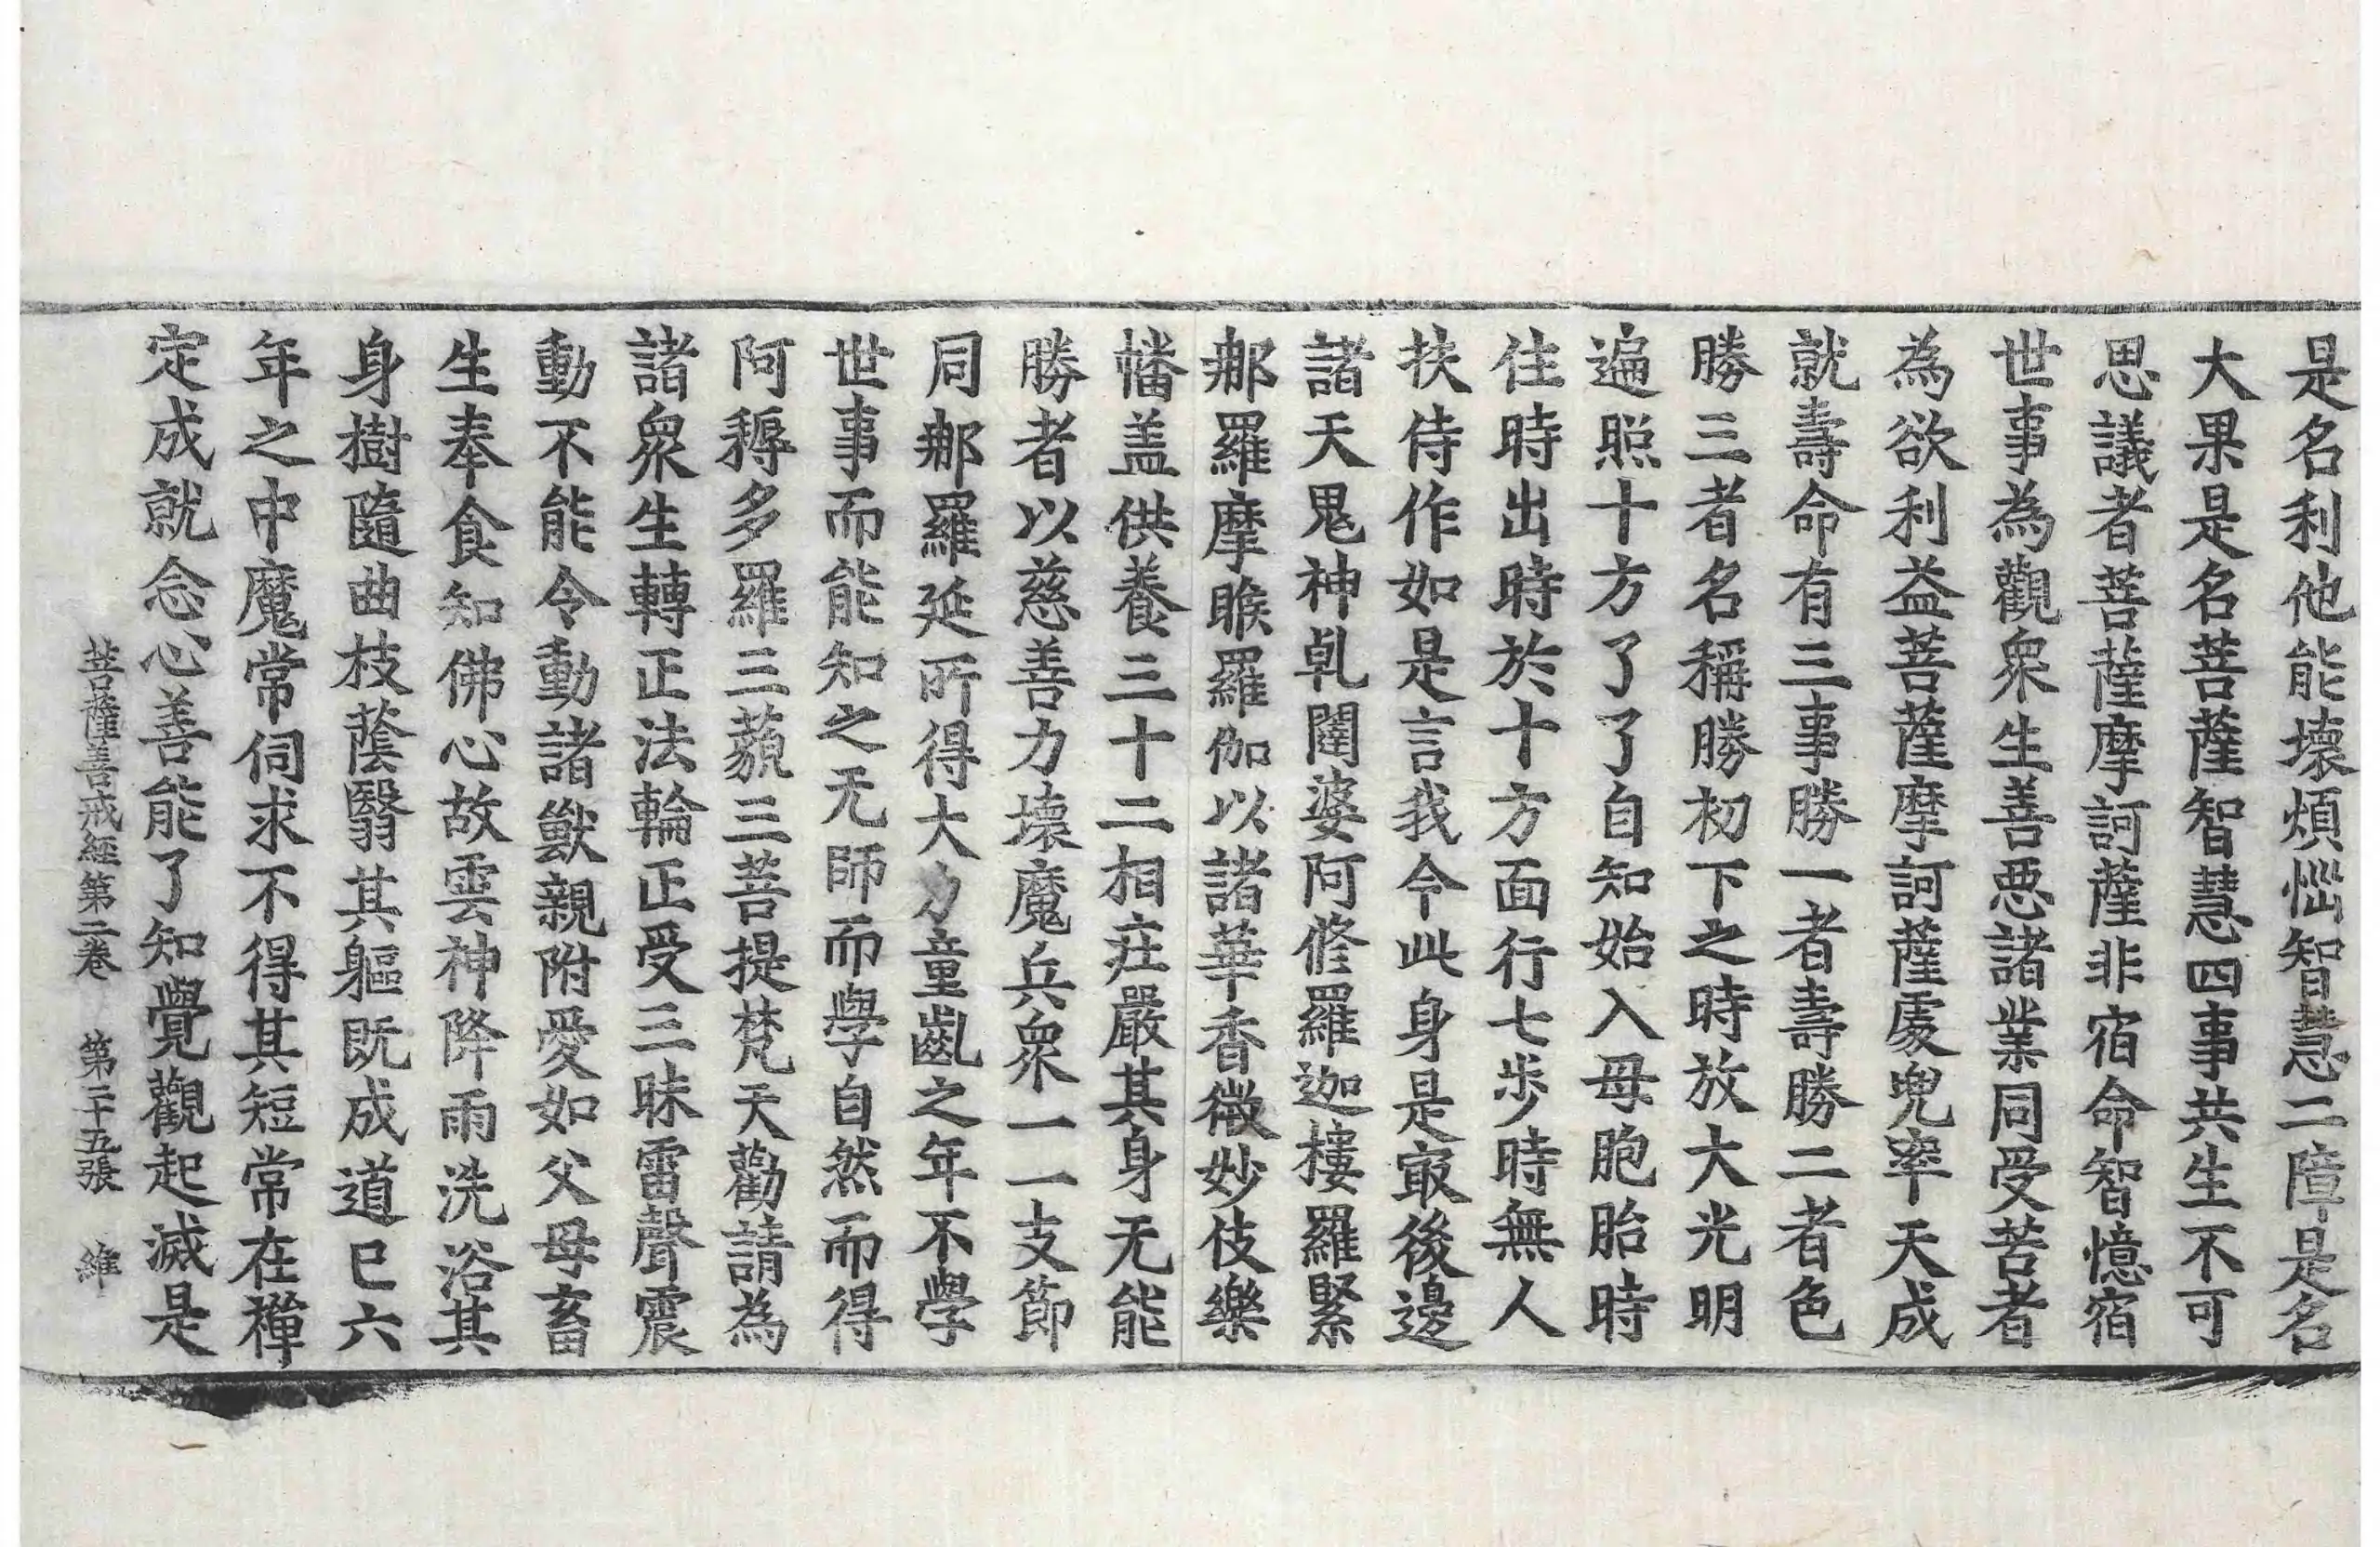 是名利他能壞煩惱智慧二障是名
大果是名菩薩智慧四事共生不可
思議者菩薩摩訶薩非宿命智憶宿
世事為觀衆生善惡諸業同受苦者
為欲利益菩薩摩訶薩處兜率天成
就壽命有三事勝一者壽勝二者色
勝三者名稱勝初下之時放大光明
遍照十方了了自知始入母胞胎時
住時出時於十方面行七步時無人
扶侍作如是言我今此身是寂後邊
諸天鬼神乹闥婆阿脩羅迦樓羅緊
那羅摩睺羅伽以諸華香微妙伎樂
幡盖供養三十二相莊嚴其身无能
勝者以慈善力壞魔兵衆一一支節
同那羅延所得大力童齓之年不學
世事而能知之无師而學自然而得
阿耨多羅三藐三菩提梵天勸請為
諸衆生轉正法輪正受三昧雷聲震
動不能令動諸獸親附愛如父母畜
生奉食知佛心故雲神降雨洗浴其
身樹隨曲枝蔭翳其軀既成道已六
年之中魔常伺求不得其短常在禪
定成就念心善能了知覺觀起滅是
菩薩善戒經第二卷 第二十五張 維